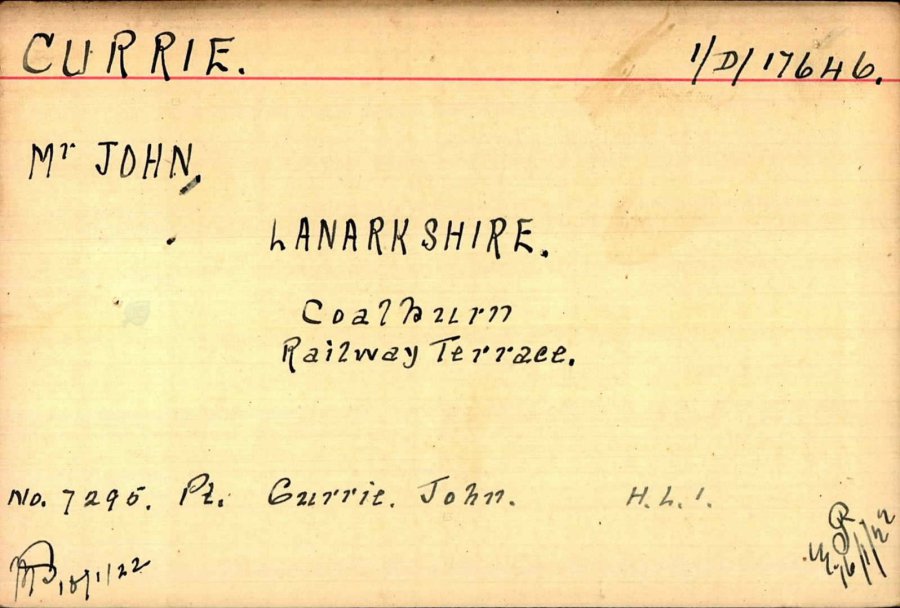 CURRIE. 1/D/17646.
Mr JOHN.
LANARKSHIRE.
Coalburn
Railway Terrace.
No. 7295. Pt. Currie. John. H.L.I.